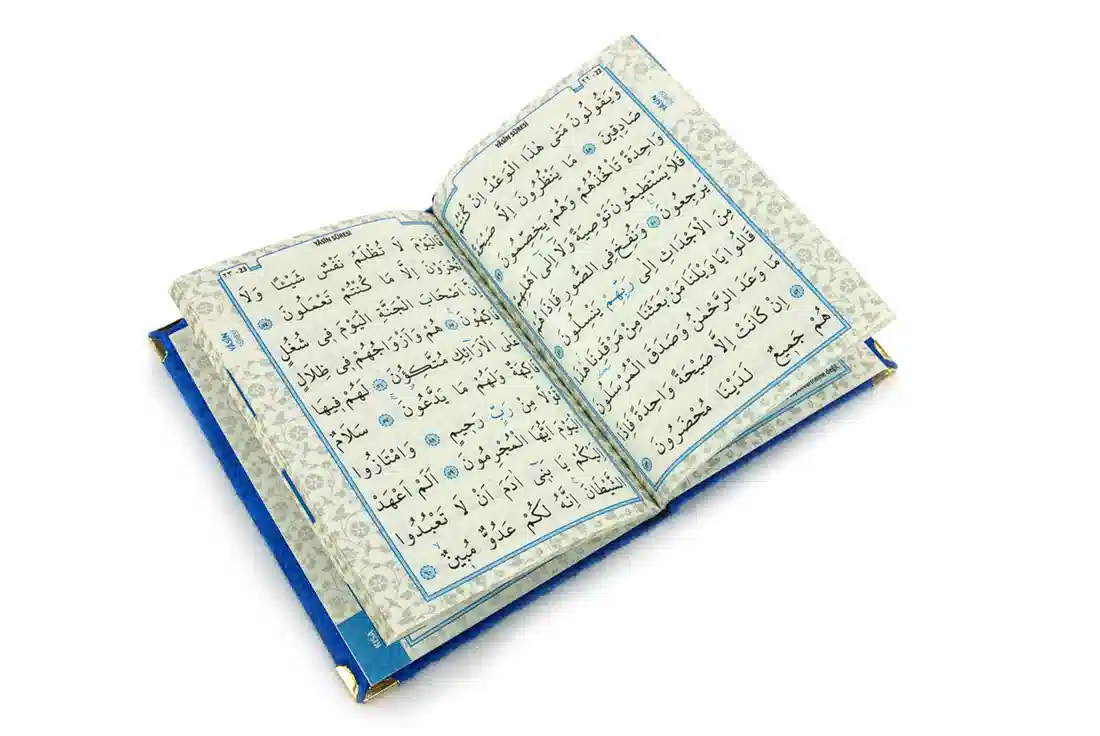 YÂSÎN SÛRESİ
٢٢ - 22
YÂSİN
SÛRESİ
وَيَقُولُونَ مَتٰى هٰذَا الْوَعْدُ اِنْ
صَادِقِينَ ٤٨ مَا يَنْظُرُونَ اِلَّا صَيْحَةً
وَاحِدَةً تَأْخُذُهُمْ وَهُمْ يَخِصِّمُونَ ٤٩
فَلَا يَسْتَطِيعُونَ تَوْصِيَةً وَلَا اِلٰى اَهْلِهِمْ
يَرْجِعُونَ ٥٠ وَنُفِخَ فِى الصُّورِ فَاِذَا هُمْ
مِنَ الْاَجْدَاثِ اِلٰى رَبِّهِمْ يَنْسِلُونَ ٥١
قَالُوا يَا وَيْلَنَا مَنْ بَعَثَنَا مِنْ مَرْقَدِنَا هٰذَا
مَا وَعَدَ الرَّحْمٰنُ وَصَدَقَ الْمُرْسَلُونَ
٥٢ اِنْ كَانَتْ اِلَّا صَيْحَةً وَاحِدَةً فَاِذَا
هُمْ جَمِيعٌ لَدَيْنَا مُحْضَرُونَ ٥٣
YÂSÎN SÛRESİ
٢٣ - 23
YÂSİN
SÛRESİ
فَالْيَوْمَ لَا تُظْلَمُ نَفْسٌ شَيْئًا وَلَا
تُجْزَوْنَ اِلَّا مَا كُنْتُمْ تَعْمَلُونَ ٥٤
اَصْحَابَ الْجَنَّةِ الْيَوْمَ فِى شُغُلٍ
فَاكِهُونَ ٥٥ هُمْ وَاَزْوَاجُهُمْ فِى ظِلَالٍ
عَلَى الْاَرَائِكِ مُتَّكِؤُنَ ٥٦ لَهُمْ فِيهَا
فَاكِهَةٌ وَلَهُمْ مَا يَدَّعُونَ ٥٧ سَلَامٌ
قَوْلًا مِنْ رَبٍّ رَحِيمٍ ٥٨ وَامْتَازُوا
الْيَوْمَ اَيُّهَا الْمُجْرِمُونَ ٥٩ اَلَمْ اَعْهَدْ
اِلَيْكُمْ يَا بَنِى اٰدَمَ اَنْ لَا تَعْبُدُوا
الشَّيْطَانَ اِنَّهُ لَكُمْ عَدُوٌّ مُبِينٌ ٦٠
KISA